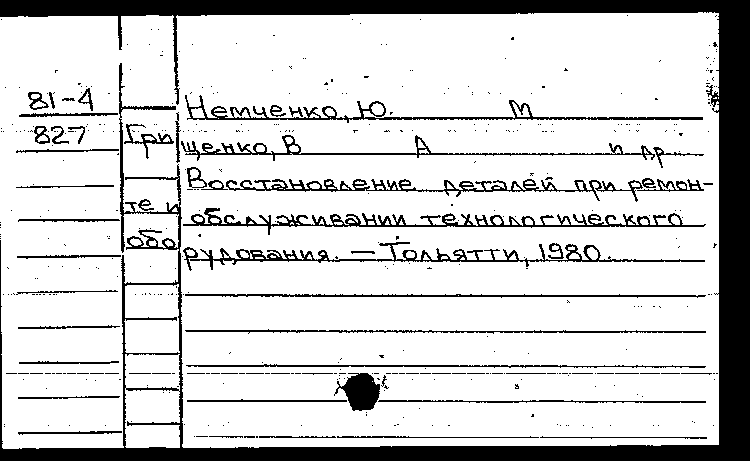 81-4 Немченко, Ю. М
827 Грищенко, В А и др
Восстановление деталей при ремон-
те и обслуживании технологического
оборудования. — Тольятти, 1980.